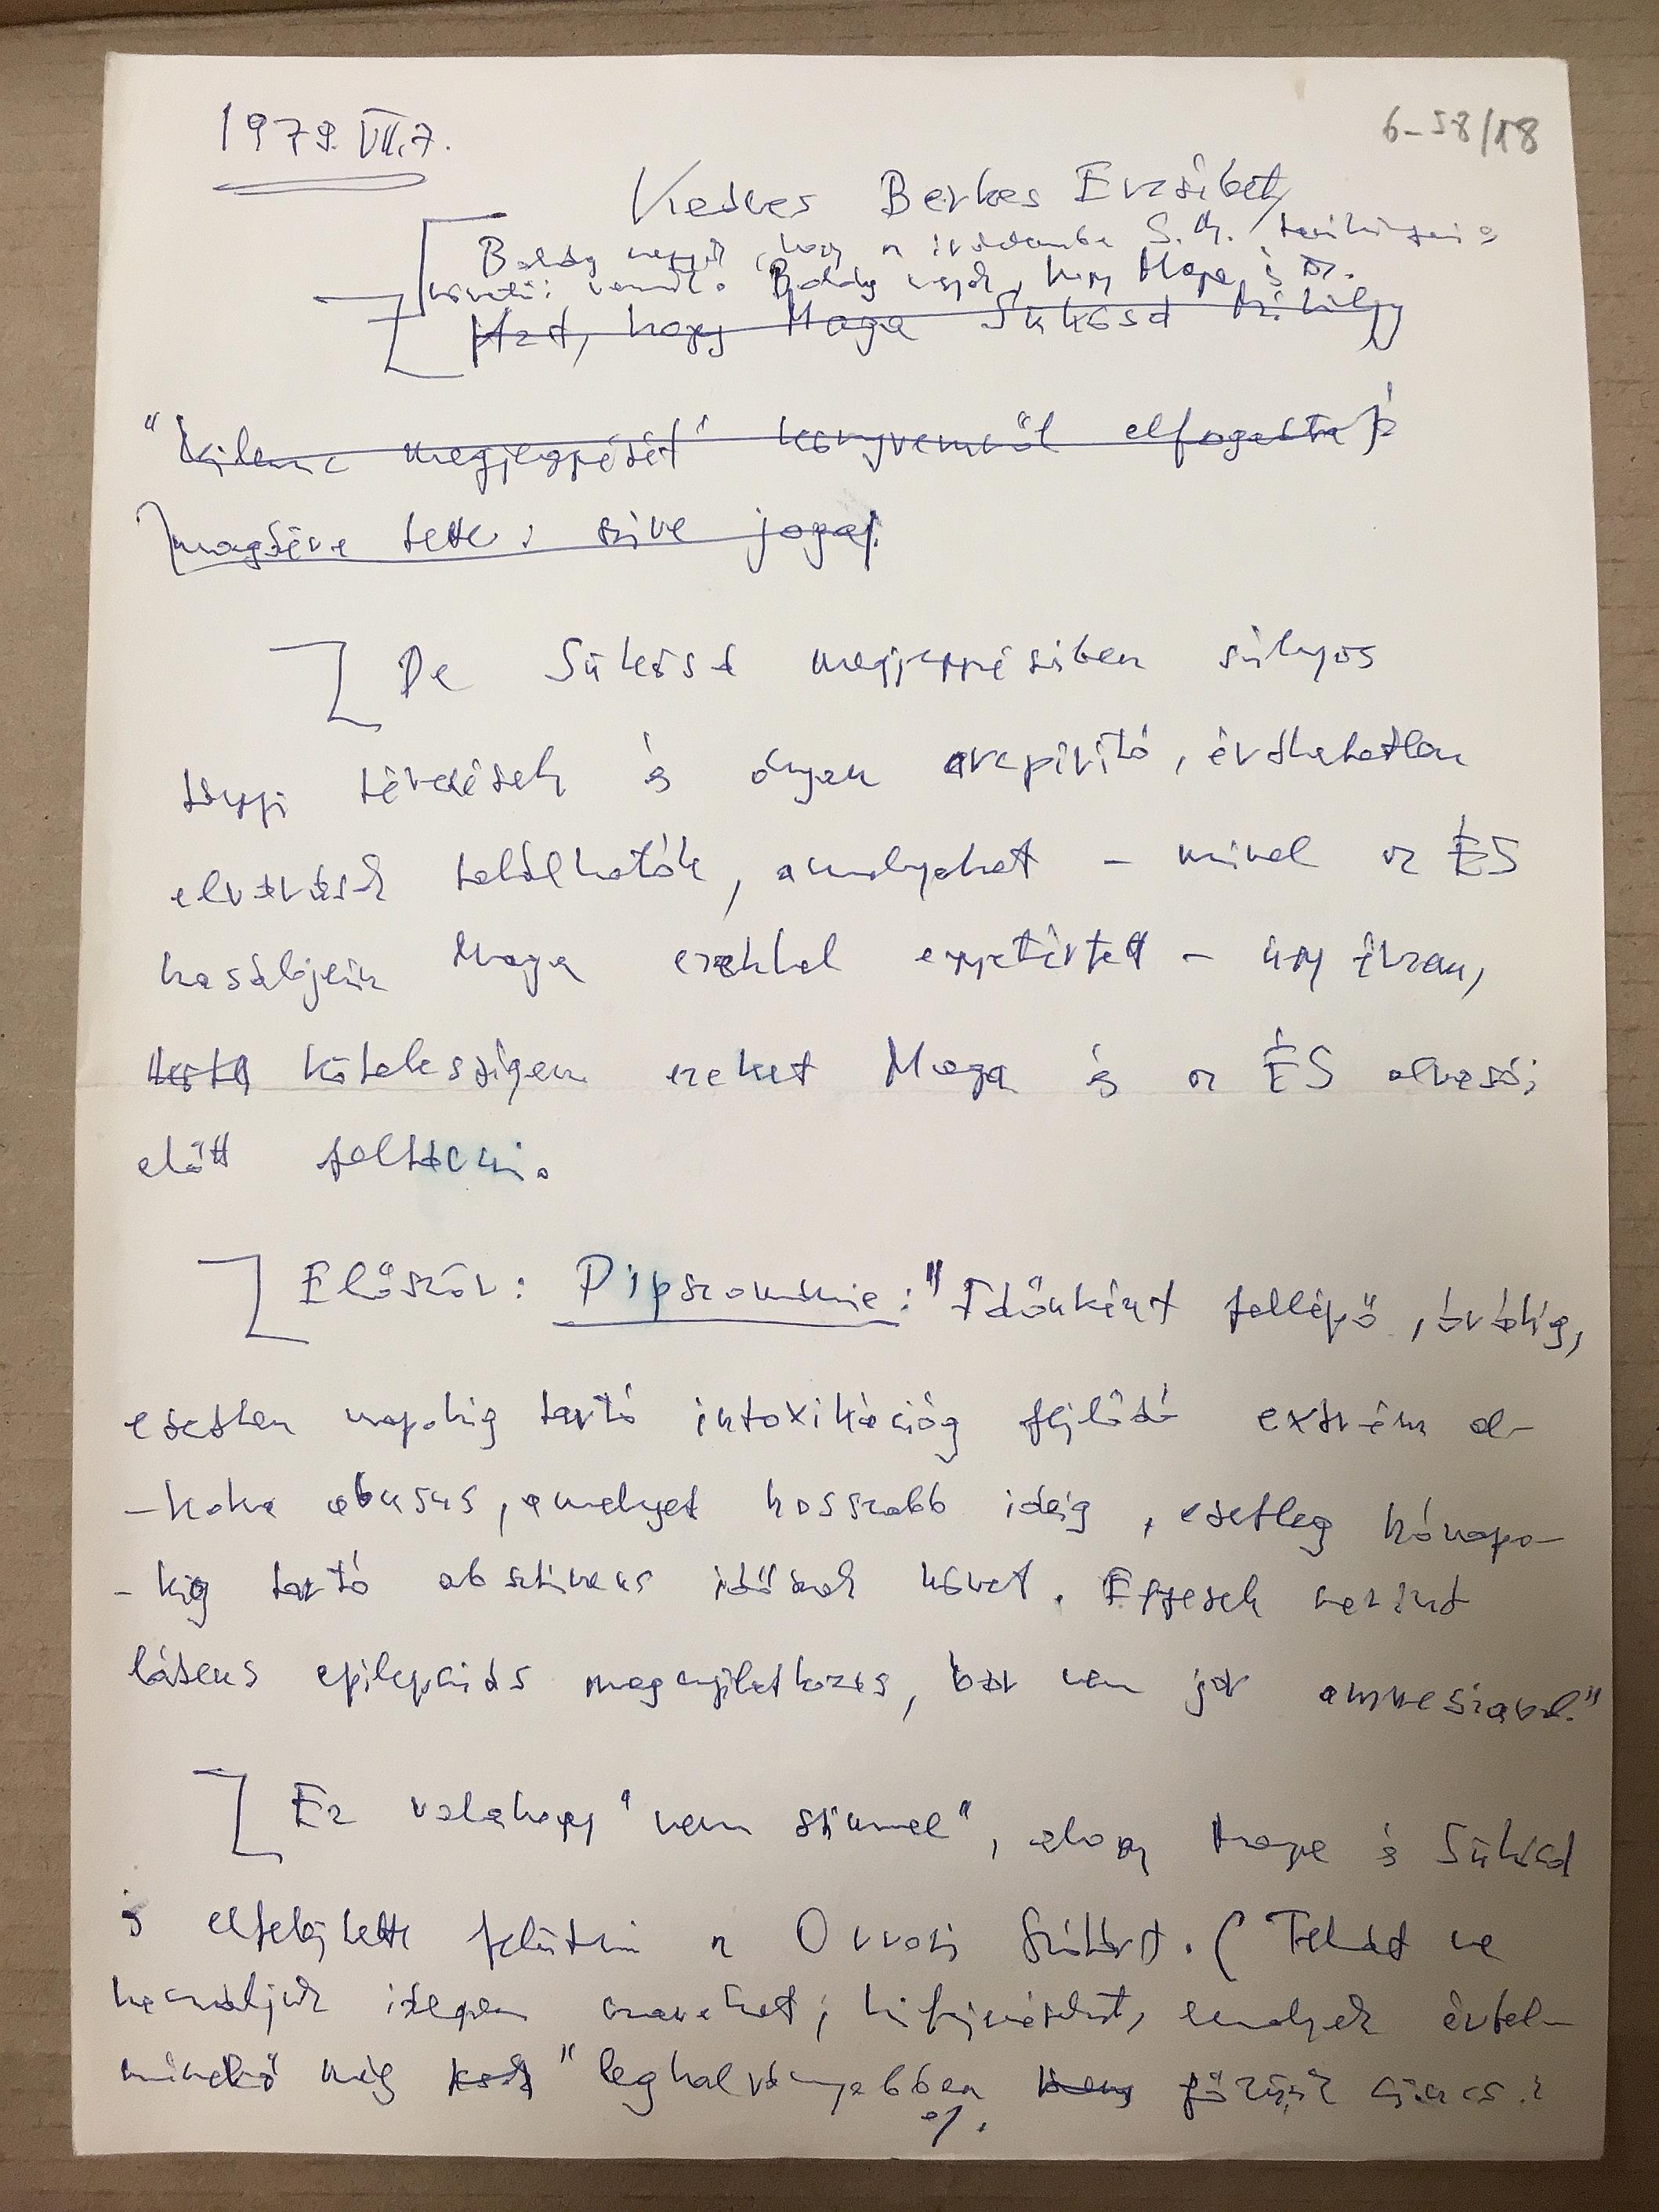 1979. VII. 7.
6-58/18
Kedves Berkes Erzsébet
Boldog vagyok, hogy az irodalomba S. M. tanításainak
követői vannak. Boldog vagyok, hogy Maga is az.
Azt, hogy Maga Sükösd Mihály
"kilenc megjegyzését" könyvemről elfogadta s
magáévá tette: szíve joga.
De Sükösd megjegyzéseiben súlyos
tárgyi tévedések és olyan arcpirító, érthetetlen
elvárások találhatók, amelyeket – mivel az ÉS
hasábjain Maga ezekkel egyetértett – úgy érzem,
kötelességem ezeket Maga és az ÉS olvasói
előtt feltárni.
Először: Dipszománia: "Időnként fellépő, órákig,
esetleg napokig tartó intoxikációig fejlődő extrém al-
-kohol abusus, amelyet hosszabb ideig, esetleg hónapo-
-kig tartó abstinens időszak követ. Egyesek szerint
látens epilepsiás megnyilatkozás, bár nem jár amnesiával."
Ez valahogy "nem stimmel", ahogy Maga és Sükösd
is elfelejtette felütni az Orvosi Szótárt. (Tehát ne
használjunk idegen szavakat, kifejezéseket, amelyek értel-
méről még leghalványabban fogalmunk sincs.
%.